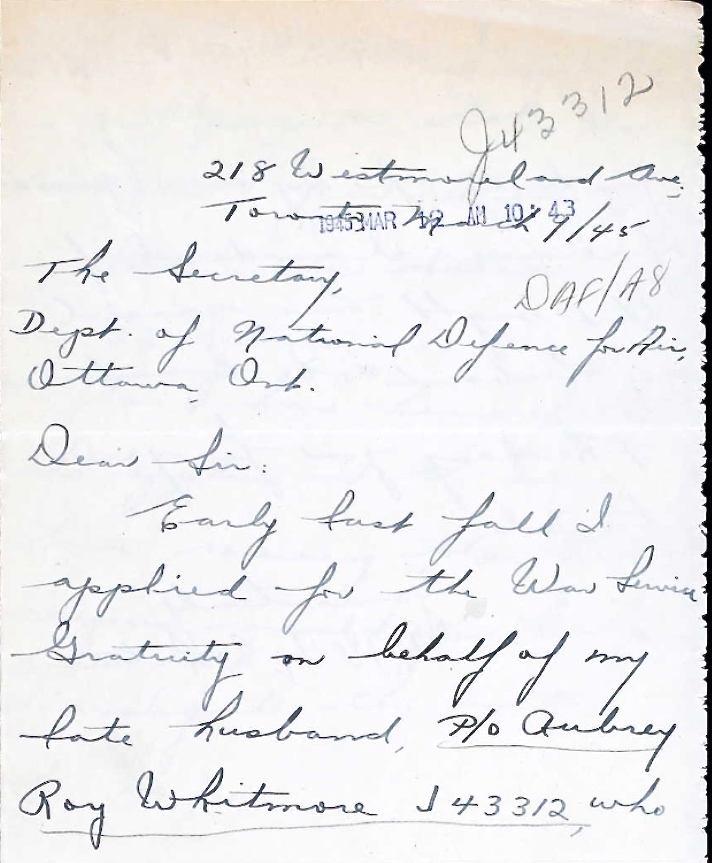 J43312
218 Westmoreland Ave.
Toronto March 9/45
1945 MAR 12 AM 10:43
The Secretary,
DAF/A8
Dept. of National Defence for Air,
Ottawa, Ont.
Dear Sir:
Early last fall I
applied for the War Service
Gratuity on behalf of my
late husband, P/O Aubrey
Roy Whitmore J43312, who